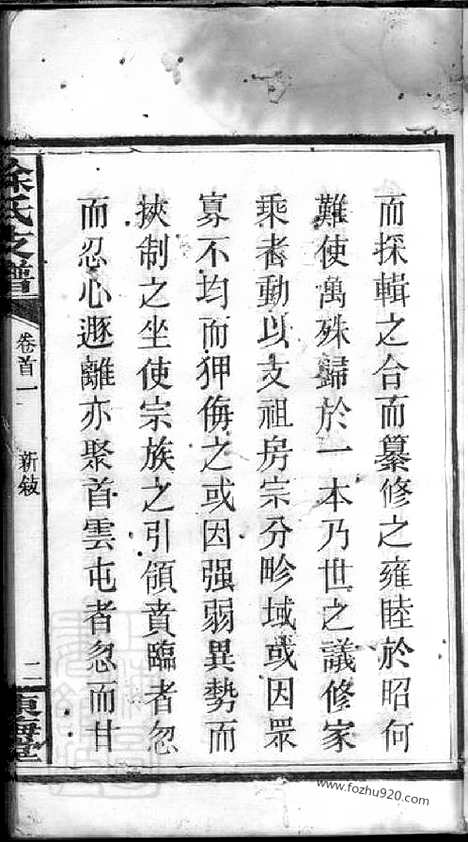 而探輯之合而纂修之雍睦於昭何
難使萬殊歸於一本乃世之議修家
乘者動以支祖房宗分畛域或因眾
寡不均而狎侮之或因强弱異勢而
挾制之坐使宗族之引領賁臨者忽
而忍心遯離亦聚首雲屯者忽而甘
徐氏支譜
卷首一
新敍
二
東海堂
www.fozhu920.com